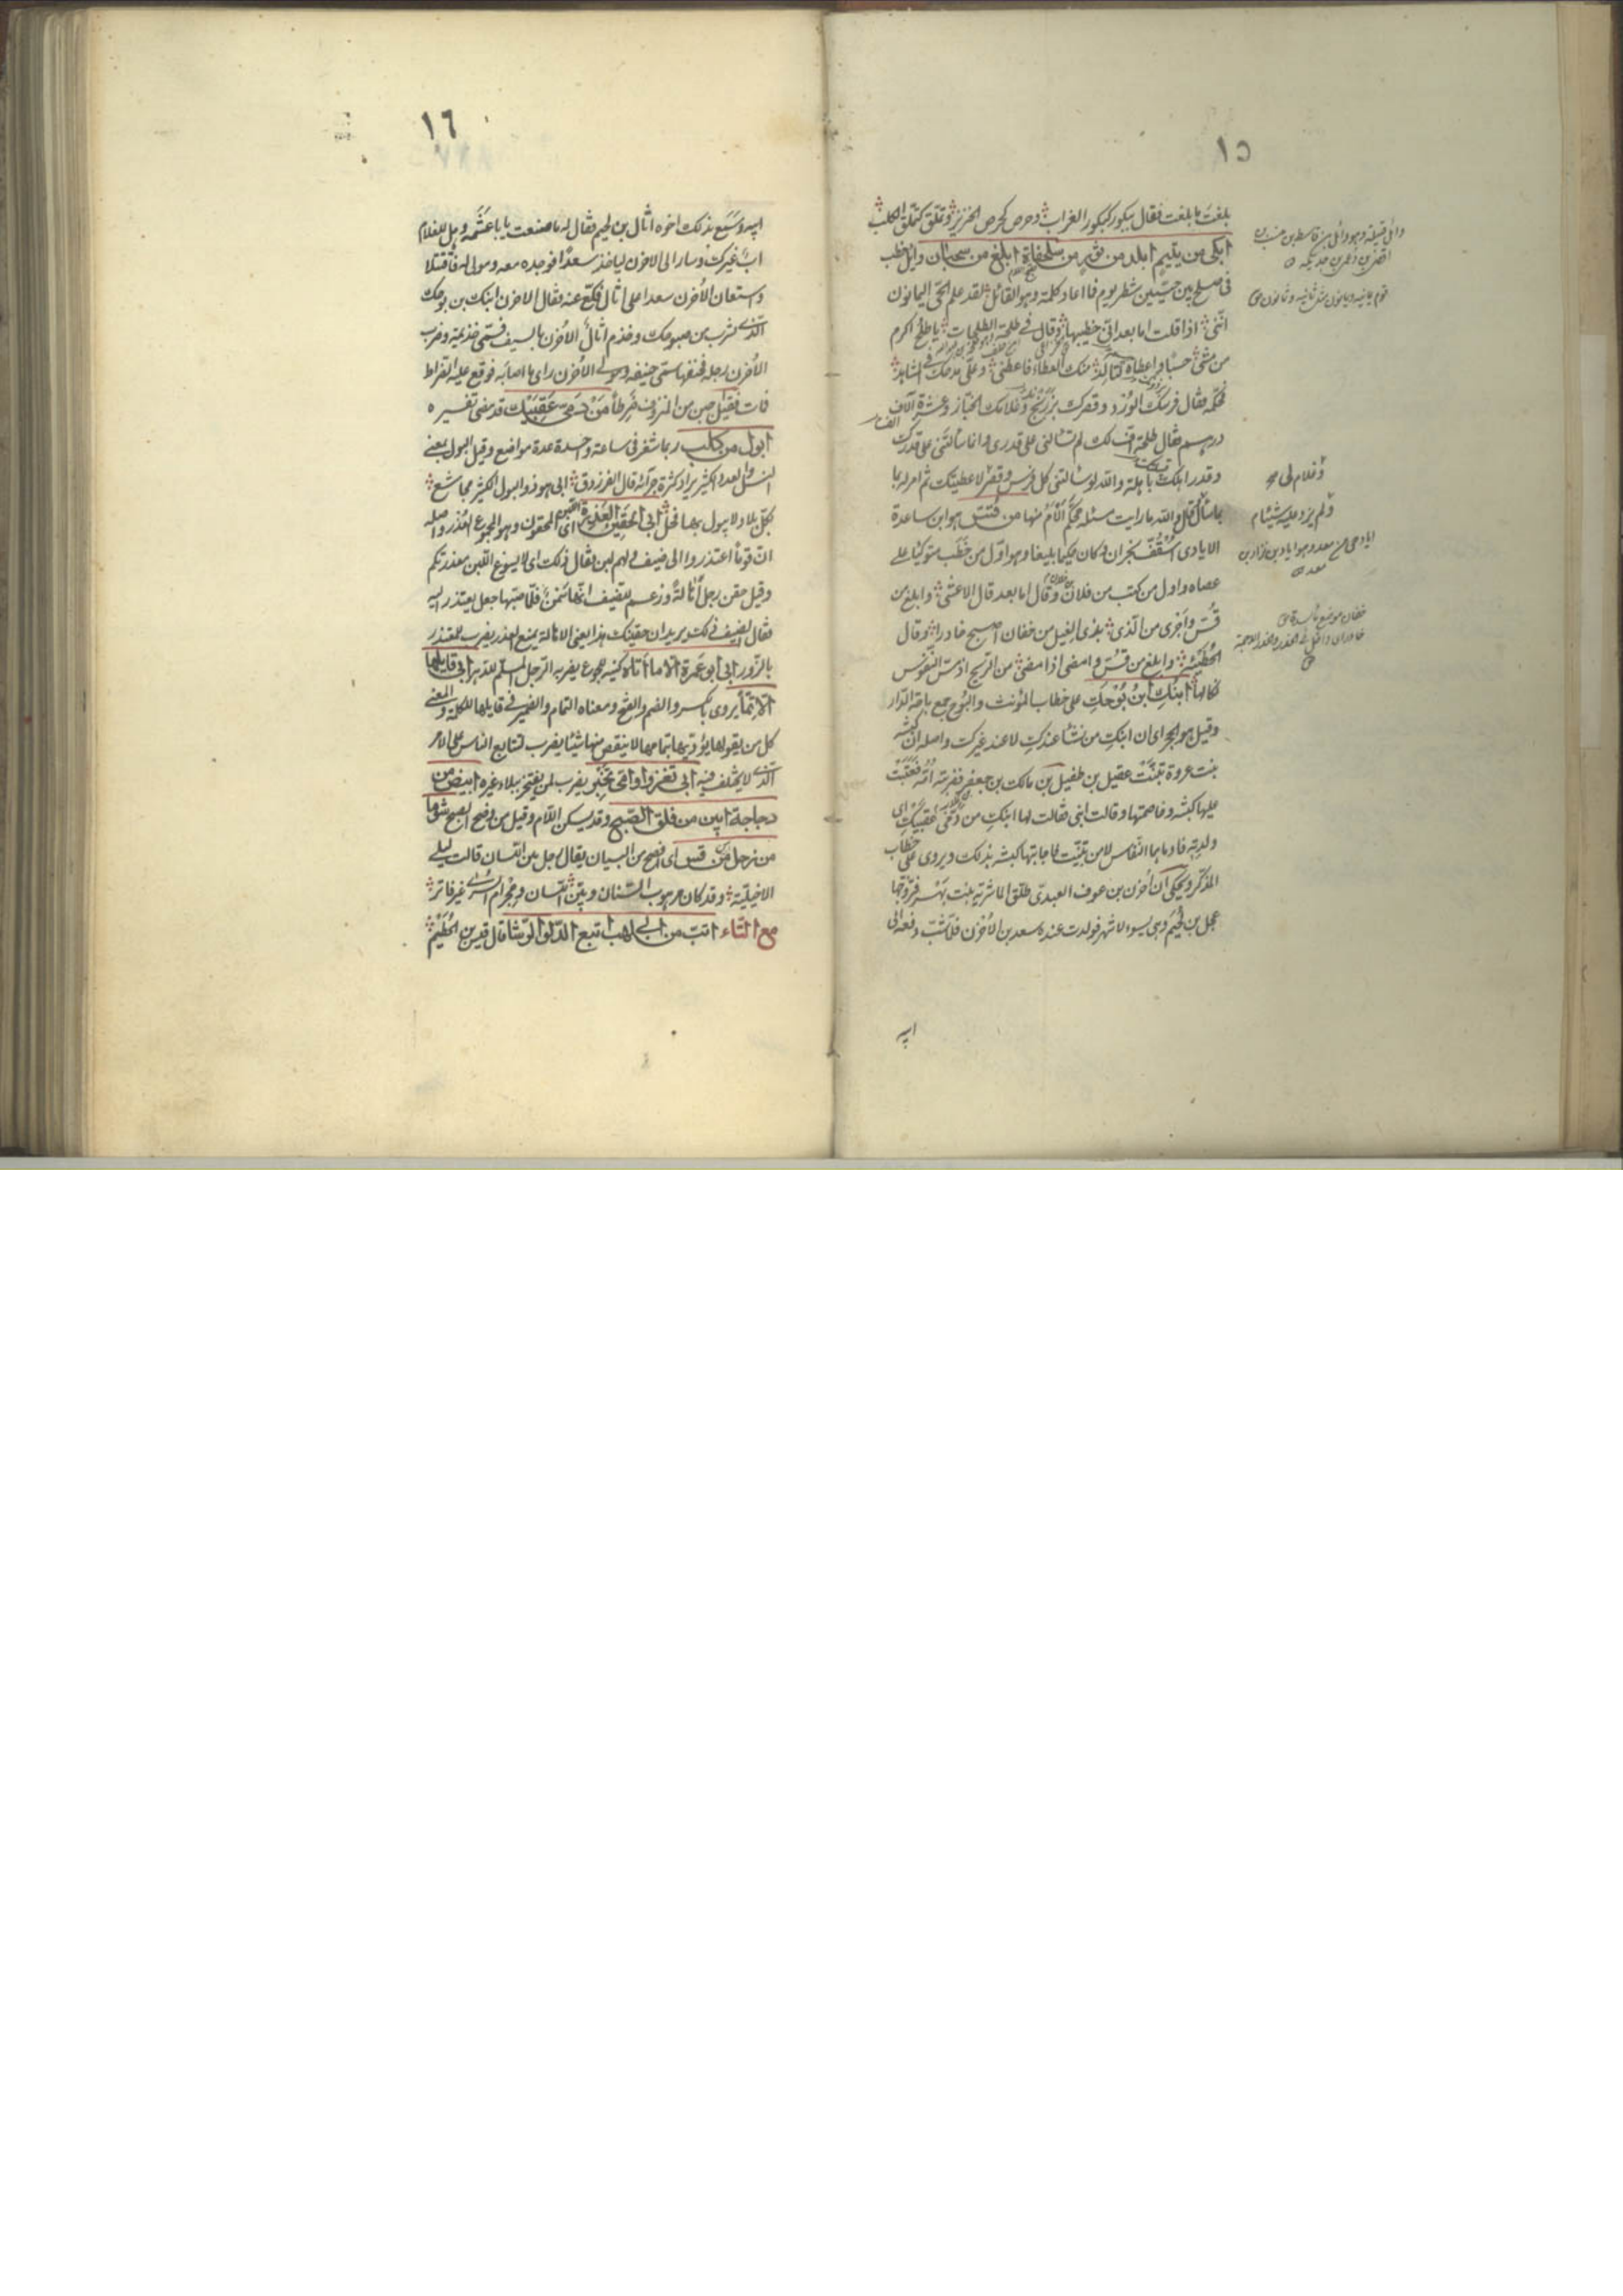 ١٥
بلغت ما بلغت فقال ببكور كبكور الغراب وحرص كحرص الخنزير وتملق كتملق الكلب
ابكى من يتيم ابلد من ثور من سلحفاة ابلغ من سحبان وايل خطب
فى صلح بين حيين شطر يوم فما اعاد كلمة وهو القائل لقد علم الحى اليمانون
اننى اذا قلت اما بعد انى خطيبها وقال فى طلحة الطلحات يا طلح اكرم
من مشى حسبا واعطاه لتالد منك العطاء فاعطنى وعلى مدحك فى المشاهد
فحكمه فقال فرسك الورد وقصرك بزرنج وغلامك الخباز وعشرة آلاف
درهم فقال طلحة اف لك لم تسالنى على قدرى وانما سألتنى على قدرك
وقدر اهلك باهلة والله لو سالتنى كل فرس وقصر لاعطيتك ثم امر له بما
سأل وقال والله ما رايت مسئلة محكم ألأم منها من قس هو ابن ساعدة
الايادى اسقف نجران وكان حكيما بليغا وهو اول من خطب متوكئا على
عصاه واول من كتب من فلان وقال اما بعد قال الاعشى وابلغ من
قس واجرى من الذى بذى الغيل من خفان اصبح خادرا وقال
الحطيئة وابلغ من قس وامضى اذا مضى من الريح اذ مس النفوس
نكالها ابنك ابن بوحك على خطاب المؤنث والبوح جمع باحة الدار
وقيل هو الجراى ان ابنك من نشأ عندك لا عند غيرك واصله ان كبشة
بنت عروة تبنت عقيل بن طفيل بن مالك بن جعفر فضربته امه فعتبت
عليها كبشة وخاصمتها وقالت ابنى فقالت لها ابنك من دمى عقبيك اى
ولدته فادماهما النفاس لا من تبنيت فاجابتها كبشة بذلك ويروى على خطاب
المذكر ويحكى ان احزن بن عوف العبدى طلق الماشرية بنت نهسر فتزوجها
عجل بن لجيم وهى نسوء لاشهر فولدت عنده سعد بن الاحزن فلما شب دفعه الى
ابيه
وائل قبيلة وهو وائل بن قاسط بن هنب بن
افصى بن دعمى بن جديلة
وغلام لى صح
ولم يزد عليه شيئا م
اياد حى من معد وهو اياد بن نزار بن
معد
خفان موضع مأسدة
١٦
ابيه وسمع بذلك اخوه اثال بن لجيم فقال له ما صنعت يا با عشمة وهل للغلام
اب غيرك وسار الى الاحزن لياخذ سعدا فوجده معه ومولى له فاقتتلا
واستعان الاحزن سعدا على اثال فكع عنه فقال الاحزن ابنك بن بوحك
الذى يشرب من صبوحك وخذم اثال الاحزن بالسيف فسمى خذيمة وضرب
الاحزن رجله فحنفها سمى حنيفة ومولى الاحزن راى ما اصابه فوقع عليه الضراط
فمات فقيل اجبن من المنزوف ضرطا من دمى عقبيك قد مضى تفسيره
ابول من كلب ربما شغر فى ساعة واحدة عدة مواضع وقيل البول بمعنى
النسل والعدد الكثير يراد كثرة جرائه قال الفرزدق ابى هو ذو البول الكثير مجاشع
بكل بلاد لا يبول بها فحل ابى الحقين العذرة اى اللبن المحقون وهو المجموع العذر واصله
ان قوما اعتذروا الى ضيف ولهم لبن فقال ذلك اى لا يسوغ اللبن معذرتكم
وقيل حقن رجل اهالة وزعم للضيف انها سمن فلما صبها جعل يعتذر اليه
فقال الضيف ذلك ويريد ان حقينك هذا يعنى الاهالة يمنع العذر يضرب للمعتذر
بالزور ابى ابو عمرة الا ما اتاه كنية الجوع يضربه الرجل المسلم لقدره ابى قايلها
الا تما يروى بالكسر والضم والفتح ومعناه التمام والضمير فى قايلها للكلمة والمعنى
كل من يقولها يؤديها بتمامها لا ينقص منها شيئا يضرب لتتابع الناس على الامر
الذى لا يختلف فيه ابى تغزو وامى تخبر يضرب لمن يفتخر ببلاء غيره ابيض من
دجاجة ابين من فلق الصبح وقد يسكن اللام وقيل من وضح الصبح شؤما
من زحل من قس اى افصح من البيان يقال رجل بين اللسان قالت ليلى
الاخيلية وقد كان مرهوب السنان وبين اللسان ومجرام السرى غير فاتر
مع التاء اتب من ابى لهب اتبع الدلو الرشا قال قيس بن الخطيم